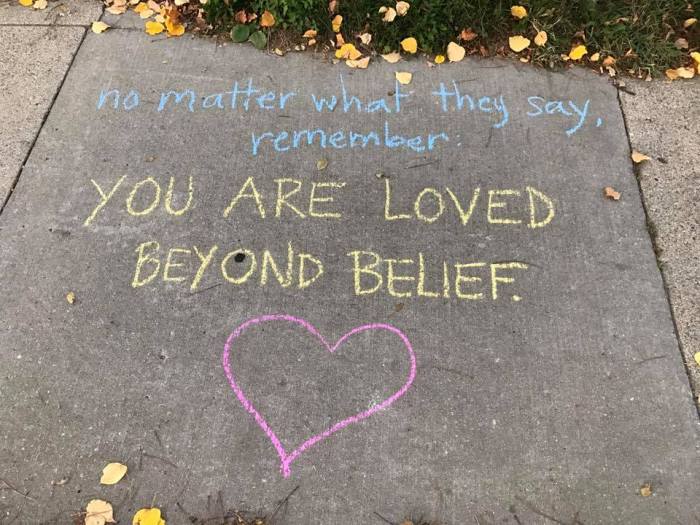 no matter what they say,
remember:
YOU ARE LOVED
BEYOND BELIEF.